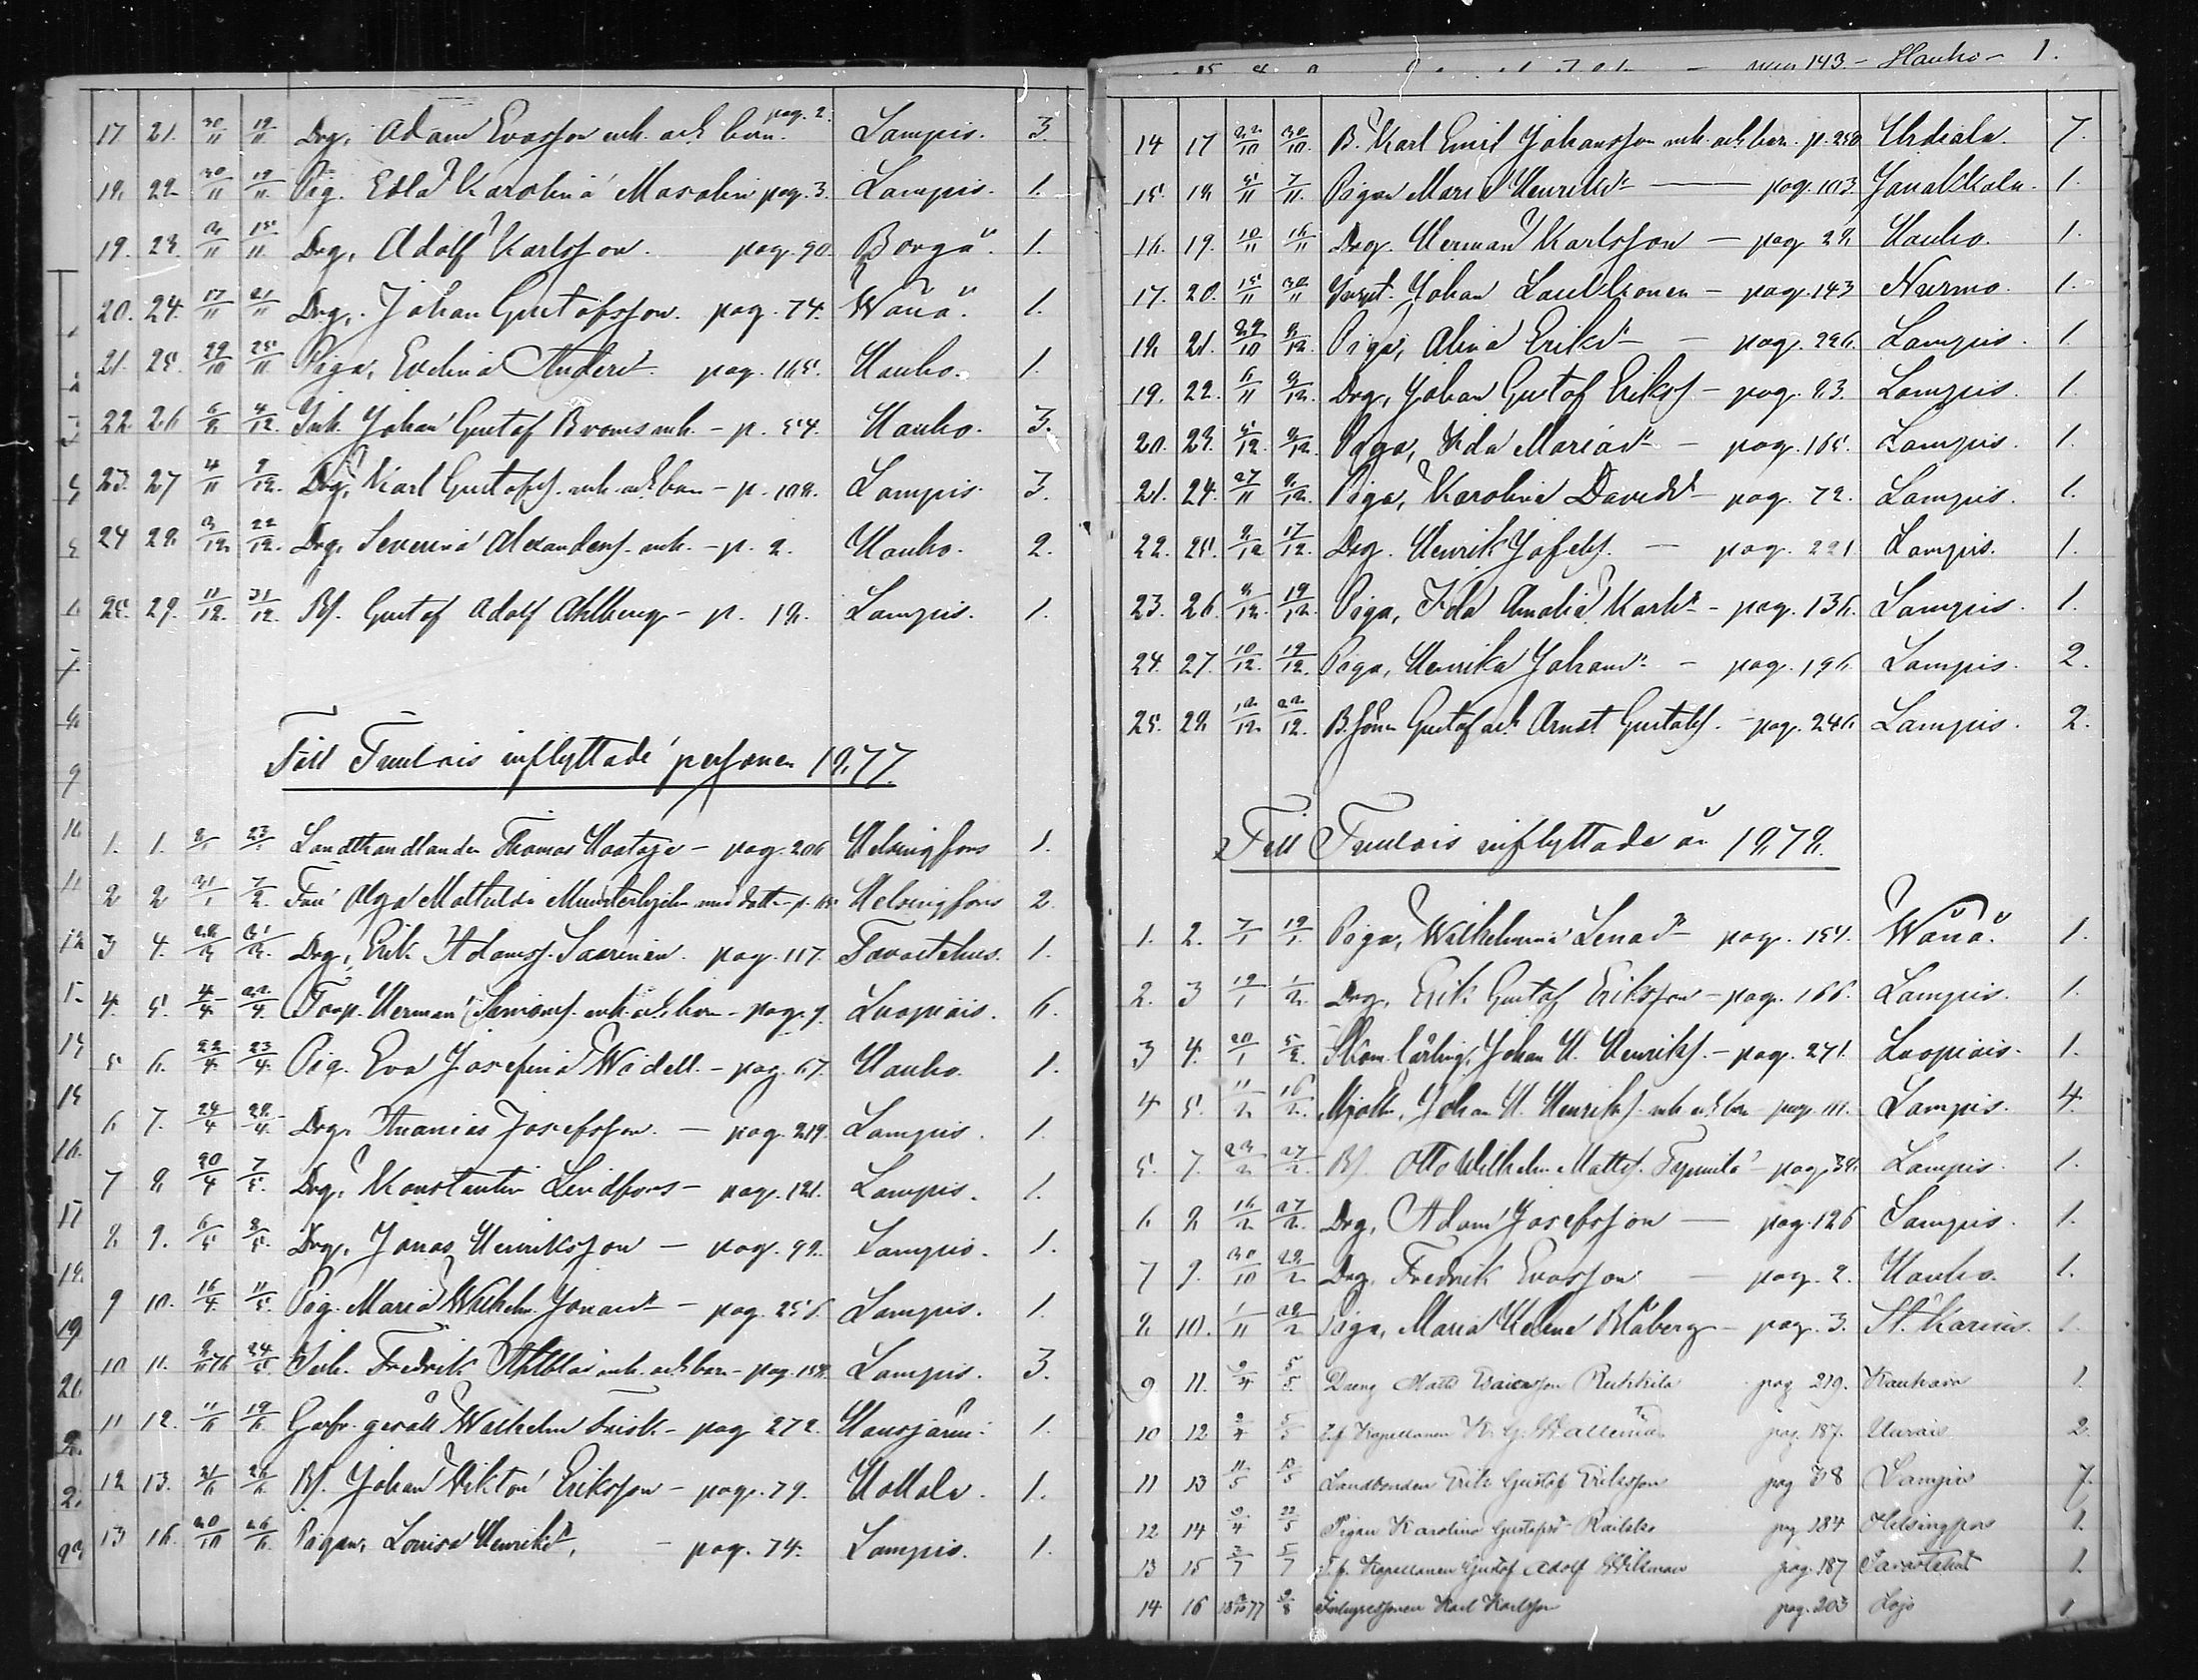 17. 21. 30/11 19/11 Drg. Adam Evasson mh. och barn. pag. 2. Lampis. 3.
18. 22. 30/11 19/11 Pig. Edla Karolina Masalin pag. 3. Lampis. 1.
19. 23. 3/11 15/11 Drg. Adolf Karlsson. pag. 90. Borgå. 1.
20. 24. 17/11 21/11 Drg. Johan Gustafsson. pag. 74. Wånå. 1.
21. 25. 29/10 25/11 Piga, Evelina Andersdr. pag. 165. Hauho. 1.
22. 26 6/8 4/12. Inh. Johan Gustaf Broms mh. - p. 54. Hauho. 3.
23. 27 4/11 9/12. Drg. Karl Gustafss. mh. och barn - p. 108. Lampis. 3.
24 28 3/12 22/12. Drg. Severin Alexanderss. mh. - p. 2. Hauho. 2.
25. 29. 11/12. 31/12. Bs. Gustaf Adolf Ahlberg - p. 18. Lampis. 1.
Till Tuulois inflyttade personer 1877.
1. 1. 8/1 23/1 Landthandlanden Thomas Haataja - pag. 206 Helsingfors 1.
2 2 31/1 7/2. Fru Olga Mathilda Munsterhjelm med dotter Helsingfors 2
3 4. Drg. Erik Adamss. Saarinen. pag. 117. Tavastehus. 1.
4. 5. 4/4 22/4. Torp. Herman Simonss. mh. och barn - pag. 9. Luopiois. 6.
5 6. 22/4. 23/4. Pig. Eva Josefina Widell. - pag. 67. Hauho. 1.
6 7. 24/4 28/4. Drg. Ananias Josefsson. - pag. 219. Lampis. 1.
7 8. 20/4 7/5. Drg. Konstantin Lindfors - pag. 121. Lampis. 1.
8. 9. 6/5 8/5. Drg. Jonas Henriksson - pag. 98. Lampis. 1.
9 10. 16/4. 11/5. Pig. Maria Wilhelm. Jonasdr - pag. 256. Lampis. 1.
10 11. 24/5. Inh. Fredrik Ahlblas mh. och barn - pag. 158. Lampis. 3.
11 12. 11/6 19/6 Garfv. gesäll Wilhelm Frisk - pag 272. Hausjärvi. 1.
12 13. 21/6 26/6 Bs. Johan Viktor Eriksson - pag. 79. Hollola. 1.
13 16. 20/10 26/6. Pigan, Lovisa Henriksdr, - pag. 74. Lampis. 1.
143 - Hauho - 1.
14 17 22/10 30/10. B. Karl Emil Johansson mh. och barn. p. 250 Urdiala. 7.
15. 18 5/11 7/11. Pigan Maria Henriksdr - pag. 103. Janakkala. 1.
16. 19. 10/11 16/11 Drg. Herman Karlsson - pag 28 Hauho. 1.
17. 20. 15/11 30/11 Inspt. Johan Laukkonen - pag. 143 Nurmo. 1.
18 21. 29/10 8/12. Piga, Alina Eriksdr - pag. 226. Lampis. 1.
19. 22. 6/11 8/12. Drg. Johan Gustaf Erikss - pag. 83. Lampis. 1.
20. 23. 5/12. 8/12. Piga, Ida Mariadr - pag. 165. Lampis. 1.
21. 24. 27/11 8/12. Piga, Karolina Davidsdr - pag. 72. Lampis. 1.
22. 25. 8/12 17/12. Drg. Henrik Josefss. - pag. 221 Lampis. 1.
23. 26. 8/12. 19/12. Piga, Ida Amalia Karlsdr - pag. 136. Lampis. 1.
24. 27. 10/12. 19/12. Piga, Henrika Johansdr - pag. 196. Lampis. 2.
25. 28 12/12. 22/12. B. söner Gustaf och Arnst Gustafss. - pag. 246 Lampis. 2.
Till Tuulois inflyttade år 1878.
1. 2. 7/1 19/1. Piga, Wilhelmina Lenasdr pag. 154. Wånå. 1.
2. 3 19/1 1/2. Drg. Erik Gustaf Eriksson - pag. 166. Lampis. 1.
3 4. 20/1 5/2. Skom. lärling, Johan H. Henrikss. - pag. 241. Luopiois. 1.
4 5. 11/2 16/2. Mjöln. Johan H. Henrikss. mh. och barn pag. 111. Lampis. 4.
5. 7. 23/2 27/2. Bs. Otto Wilhelm Matts. pag. 34. Lampis. 1.
6. 8 16/2 27/2. Drg. Adam Josefsson - pag. 126 Lampis. 1.
7 9. 30/10 28/2 Drg. Fredrik Evasson - pag. 2. Hauho. 1.
8 10. 1/11 28/2 Piga, Maria Helena Blåberg - pag. 3. St. Karins. 1.
9 11. 9/4 5/5. Dreng Matts Ruhkila pag 219. Kauhava 1.
10 12. 2/4 5/5 T.f. Kapellanen K. G. Wallenius pag. 187. Uurais. 2.
11 13 11/5 13/5 Landbonden Erik Gustaf Eriksson pag 38 Lampis 7.
12 14 9/4 22/5 Pigan Karolina Gustafsdr Railakka pag 184 Helsingfors 1.
13 15 3/7 5/7 T.f. Kapellanen Gustaf Adolf Wikman pag. 187 Tavastehus 1.
14 16 9/8 Karl Karlsson pag. 203 Lojo 1